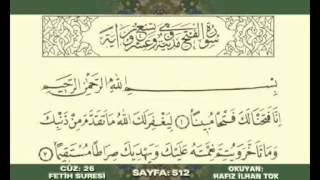 سورة الفتح مدنية وهي تسع وعشرون آية
بِسْمِ اللهِ الرَّحْمٰنِ الرَّحِيمِ
اِنَّا فَتَحْنَا لَكَ فَتْحًا مُبِينًا ﴿١﴾ لِيَغْفِرَ لَكَ اللهُ مَا تَقَدَّمَ مِنْ ذَنْبِكَ
وَمَا تَاَخَّرَ وَيُتِمَّ نِعْمَتَهُ عَلَيْكَ وَيَهْدِيَكَ صِرَاطًا مُسْتَقِيمًا ﴿٢﴾
CÜZ: 26 SAYFA: 512 OKUYAN:
FETİH SURESİ HAFIZ İLHAN TOK